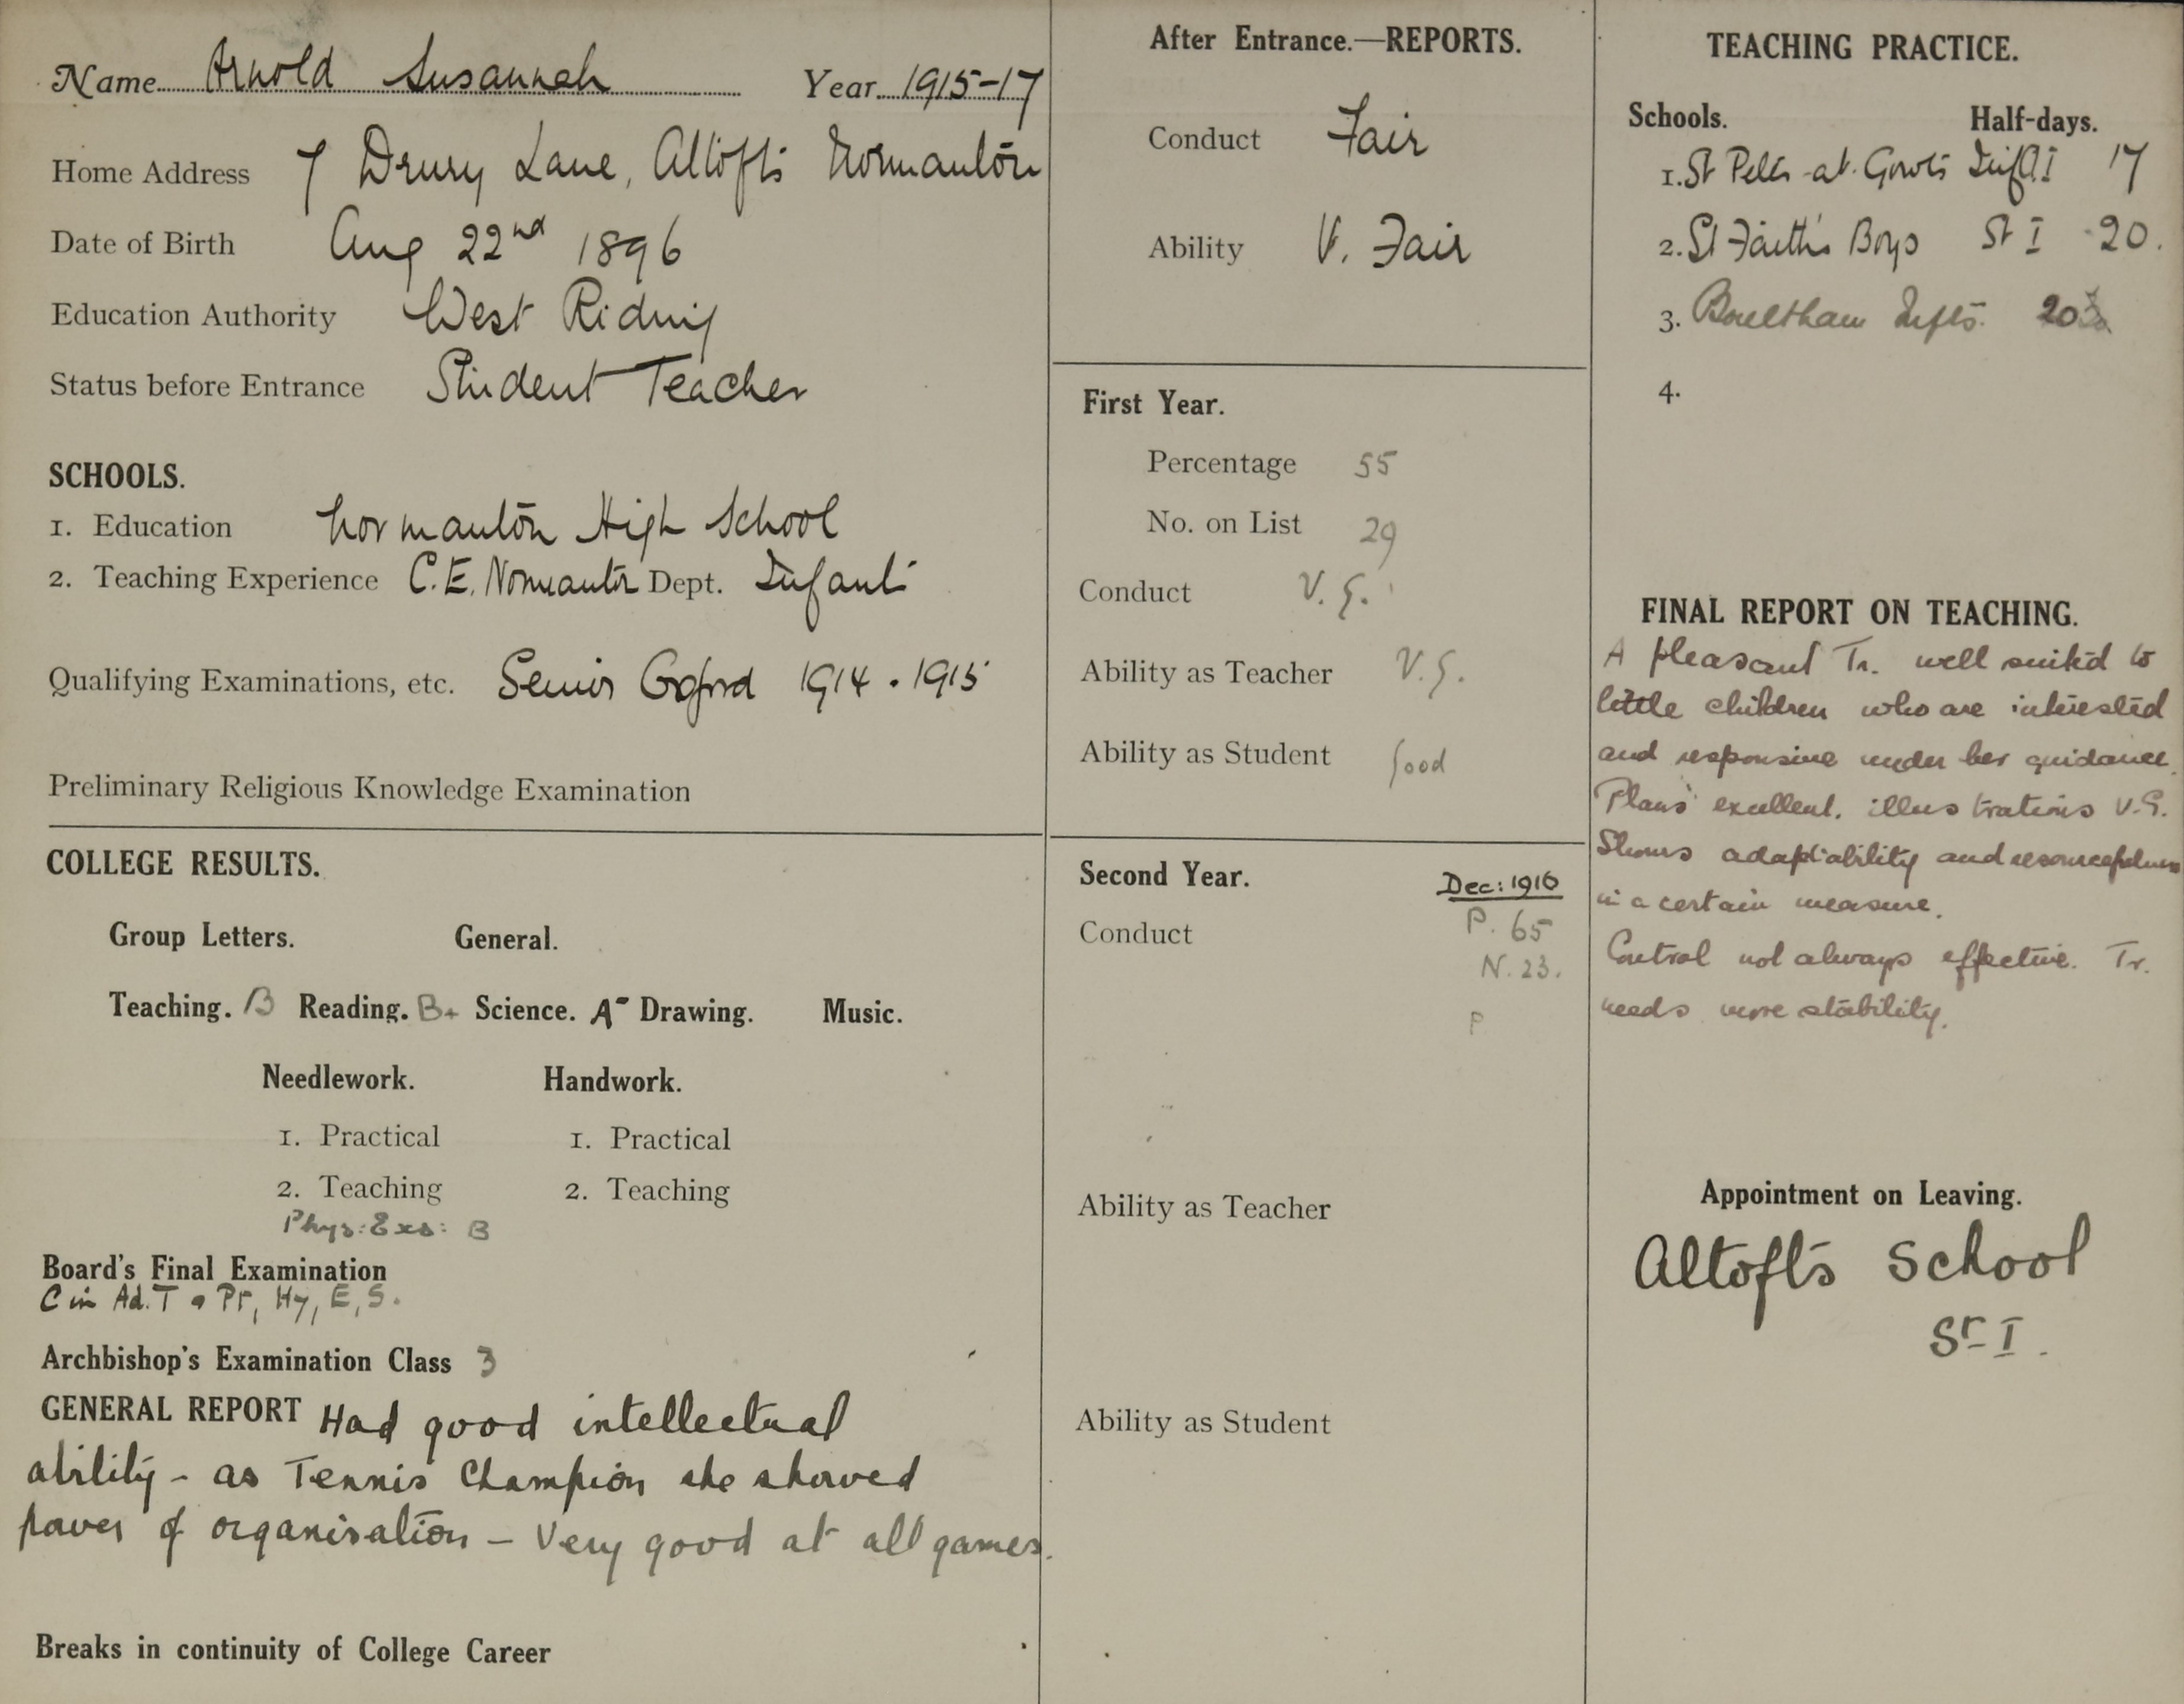 Name Arnold Susannah Year 1915-17
Home Address 7 Drury Lane, Altofts Normanton
Date of Birth Aug 22nd 1896
Education Authority West Riding
Status before Entrance Student Teacher
SCHOOLS.
1. Education Normanton High School
2. Teaching Experience C.E. Normanton Dept. Infants
Qualifying Examinations, etc. Senior Oxford 1914 . 1915
Preliminary Religious Knowledge Examination
COLLEGE RESULTS.
Group Letters. General.
Teaching. B Reading. B+ Science. A- Drawing. Music.
Needlework. Handwork.
1. Practical 1. Practical
2. Teaching 2. Teaching
Phys: Exs: B
Board's Final Examination
C in Ad. T & Pr, Hy, E, S.
Archbishop's Examination Class 3
GENERAL REPORT Had good intellectual
ability - as Tennis Champion she showed
power of organisation - Very good at all games.
Breaks in continuity of College Career
After Entrance.—REPORTS.
Conduct Fair
Ability V. Fair
First Year.
Percentage 55
No. on List 29
Conduct V.G.
Ability as Teacher V.G.
Ability as Student Good
Second Year. Dec: 1916
Conduct P. 65
N. 23.
P
Ability as Teacher
Ability as Student
TEACHING PRACTICE.
Schools. Half-days.
1. St Peter-at-Gowts 17
2. St Faith's Boys St I 20.
3. Boultham Infts. 20
4.
FINAL REPORT ON TEACHING.
A pleasant Tr. well suited to
little children who are interested
and responsive under her guidance.
Plans excellent. illustrations V.G.
Shows adaptability and resourcefulness
in a certain measure.
Control not always effective. Tr.
needs more stability.
Appointment on Leaving.
Altofts School
St I.